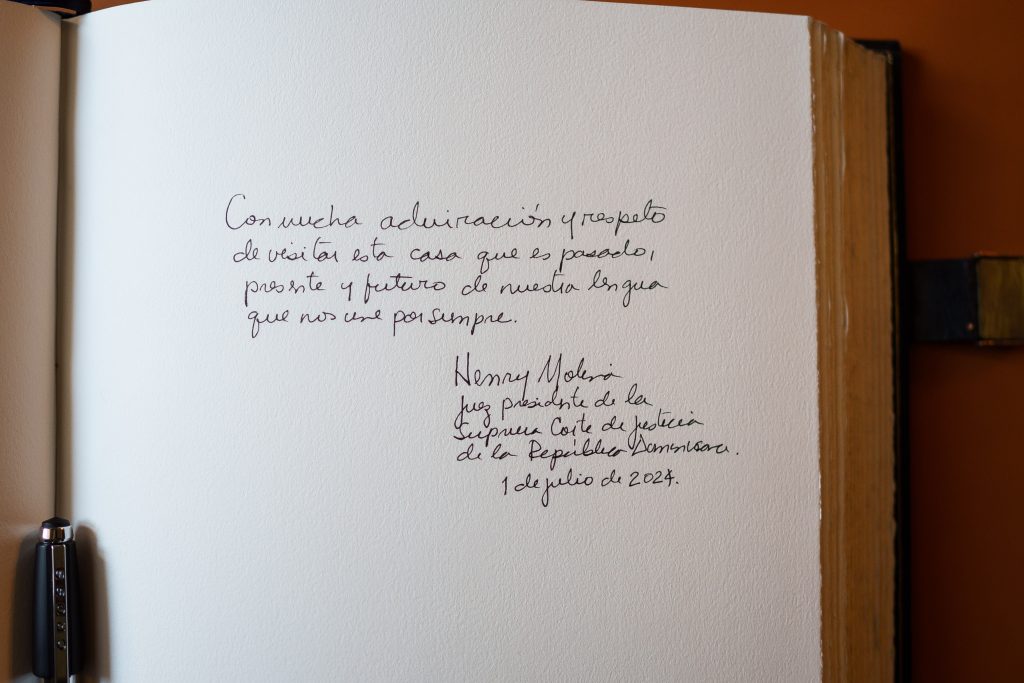 Con mucha admiración y respeto
de visitar esta casa que es pasado,
presente y futuro de nuestra lengua
que nos une por siempre.
Henry Molina
Juez presidente de la
Suprema Corte de Justicia
de la República Dominicana.
1 de julio de 2024.